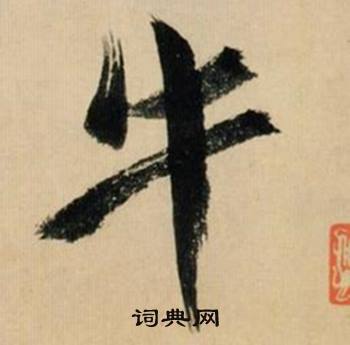 牛
词典网